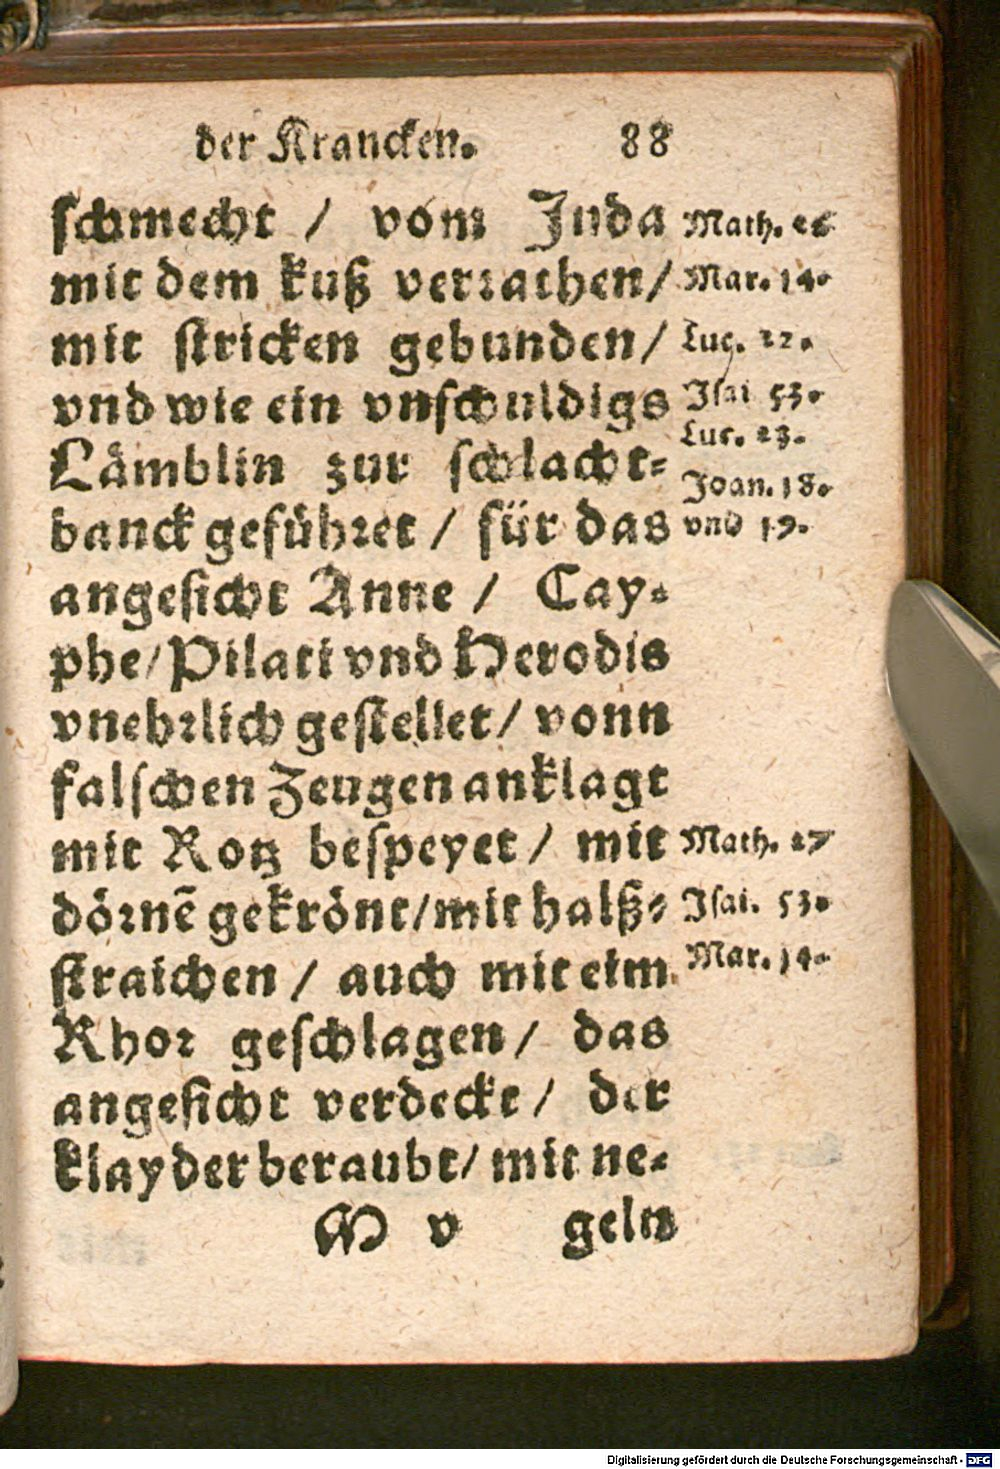 der Krancken. 88
schmecht / vom Juda
mit dem kuß verꝛathen/
mit stricken gebunden/
vnd wie ein vnschuldigs
Lämblin zur schlacht⸗
banck gefühꝛet / für das
angesicht Anne / Cay⸗
phe/Pilati vnd Herodis
vnehꝛlich gestellet/ vonn
falschen Zeugen anklagt
mit Rotz bespeyet / mit
döꝛnē gekrönt/mit halß⸗
straichen / auch mit eim
Rhoꝛ geschlagen/ das
angesicht verdeckt/ der
klayder beraubt/ mit ne⸗
M v geln
Math. 26
Mar. 14.
Luc. 22.
Isai 53.
Luc. 23.
Joan. 18.
vnd 19.
Math. 27
Isai. 53.
Mar. 14.
Digitalisierung gefördert durch die Deutsche Forschungsgemeinschaft - DFG